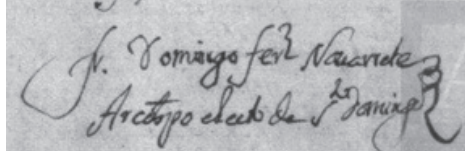 fr. Domingo fer^z Nauarrete
Arçobpo electo de S^to Domingo